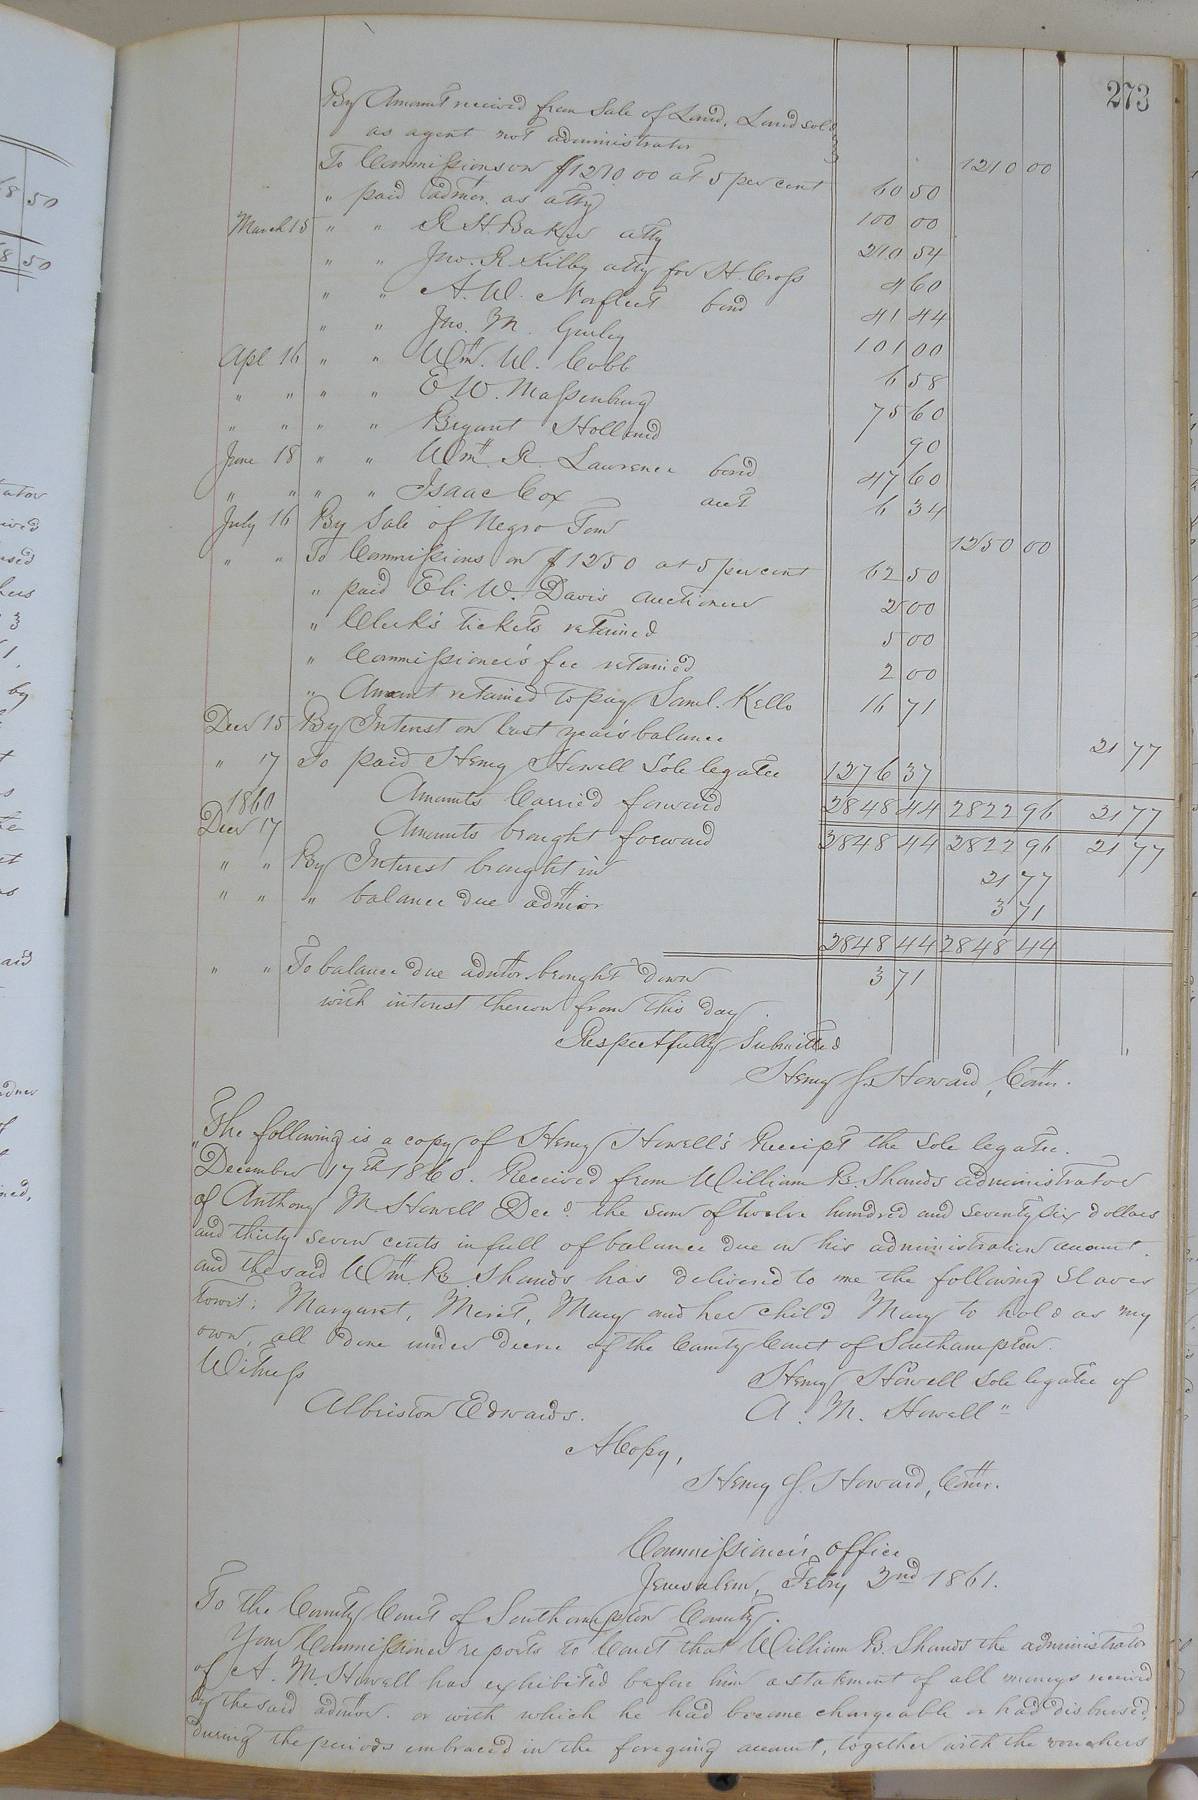 273
By Amount received from Sale of Land, Land sold
as agent not administrator 1210 00
To Commissions on $1210 00 at 5 per cent 60 50
" paid admor. as atty 100 00
March 15 " " R H Baker atty 210 54
" " Jno. R Kilby atty for H. Cross 4 60
" " A. W. Norfleet bond 41 44
" " Jno. M. Gurley 101 00
Apl 16 " " Wm. W. Cobb 6 58
" " " " E W. Massenburg 75 60
" " " " Bryant Holland 90
June 18 " " Wm. R. Lawrence bond 47 60
" " " " Isaac Cox acct 6 34
July 16 By Sale of Negro Tom 1250 00
" " To Commissions on $1250 at 5 per cent 62 50
" paid Eli W. Davis auctioneer 2 00
" Clerk's tickets retained 5 00
" Commissioner's fee retained 2 00
" Amount retained to pay Saml. Kello 16 71
Decr 15 By Interest on last year's balance 21 77
" 17 To paid Henry Howell Sole legatee 1276 37
1860 Amounts Carried forward 2848 44 2822 96 21 77
Decr 17 Amounts brought forward 2848 44 2822 96 21 77
" " By Interest brought in 21 77
" " " balance due admor 3 71
2848 44 2848 44
" " To balance due admor. brought down 3 71
with interest thereon from this day.
Respectfully Submitted
Henry J. Howard, Comr.
The following is a copy of Henry Howell's Receipt the Sole legatee.
"December 17th 1860. Received from William B. Shands administrator
of Anthony M Howell Decd. the sum of Twelve hundred and seventy six dollars
and thirty seven cents in full of balance due on his administration account.
and the said Wm. B. Shands has delivered to me the following Slaves
towit: Margaret, Merit, Mary and her child Mary to hold as my
own, all done under decree of the County Court of Southampton.
Witness Henry Howell Sole legatee of
Albriston Edwards. A. M. Howell"
A Copy,
Henry J. Howard, Comr.
Commissioner's office
Jerusalem, Feby 2nd 1861.
To the County Court of Southampton County.
Your Commissioner reports to Court that William B. Shands the administrator
of A. M. Howell has exhibited before him a statement of all moneys received
by the said admor. or with which he had become chargeable or had disbursed,
during the periods embraced in the foregoing account, together with the vouchers